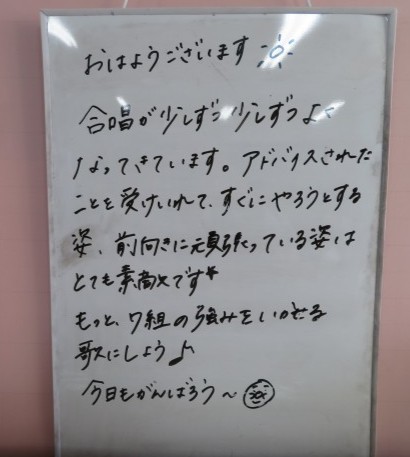 おはようございます
合唱が少しずつ少しずつよく
なってきています。アドバイスされた
ことを受けいれて、すぐにやろうとする
姿、前向きに頑張っている姿は
とても素敵です
もっと、7組の強みをいかせる
歌にしよう♪
今日もがんばろう～